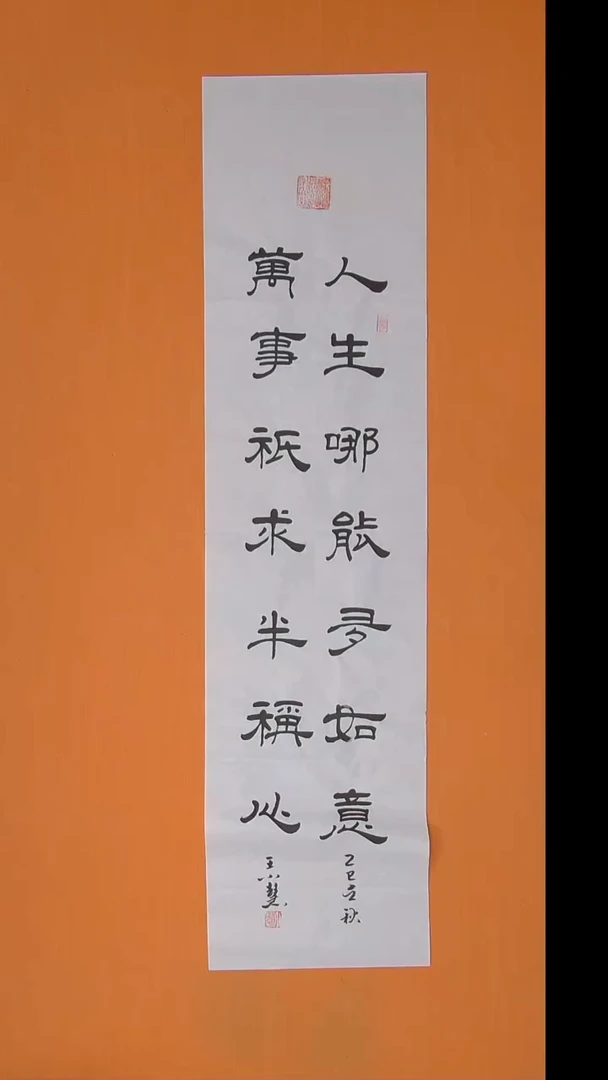 人生哪能多如意
乙巳立秋
萬事祇求半稱心
王